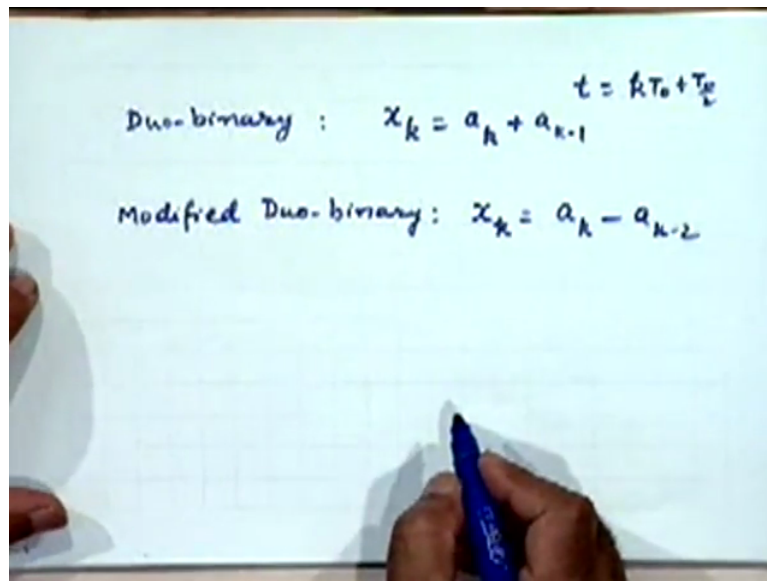 t = kT₀ + T₀/2
Duo-binary : xₖ = aₖ + aₖ₋₁
Modified Duo-binary: xₖ = aₖ - aₖ₋₂